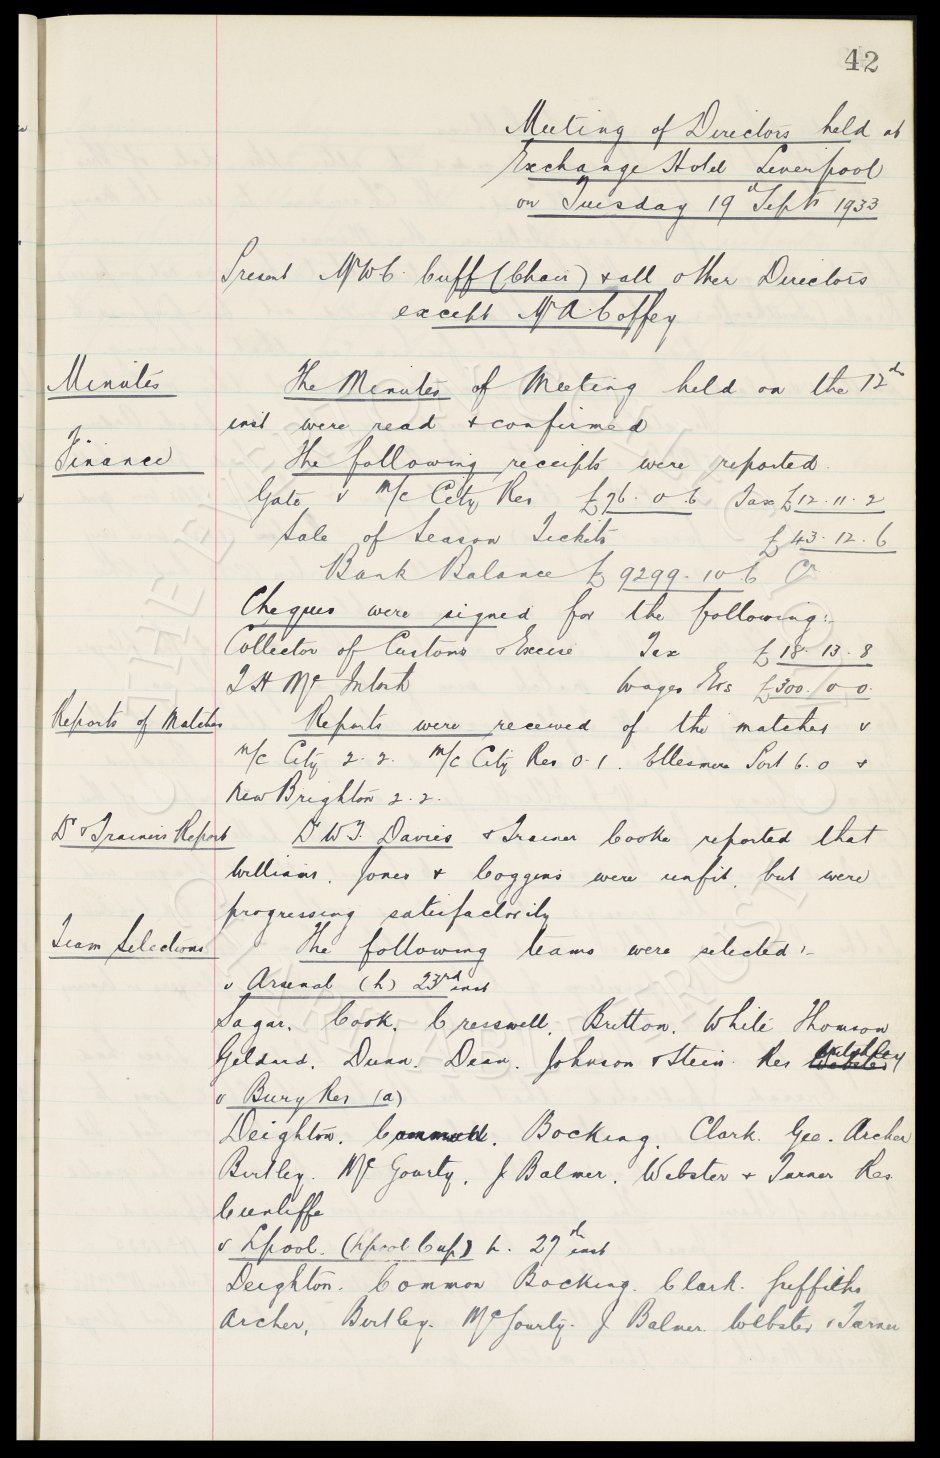 42
Meeting of Directors held at
Exchange Hotel Liverpool
on Tuesday 19th Septr 1933
Present Mr W C Cuff (Chair) & all other Directors
except Mr A Coffey
Minutes The Minutes of Meeting held on the 12th
inst were read & confirmed
Finance The following receipts were reported.
Gate v M/c City Res £76. 0. 6 Tax £12. 11. 2
Sale of Season Tickets £43. 12. 6
Bank Balance £9299. 10. 6 Cr
Cheques were signed for the following:-
Collector of Customs & Excise Tax £18. 13. 8
T H Mc Intosh Wages Etc £300. 0 0.
Reports of Matches Reports were received of the matches v
M/c City 2. 2. M/c City Res 0. 1. Ellesmere Port 6. 0 &
New Brighton 2. 2.
Dr & Trainers Report Dr W.F. Davies & Trainer Cooke reported that
Williams, Jones & Coggins were unfit, but were
progressing satisfactorily
Team Selections The following teams were selected :-
v Arsenal (h) 23rd inst
Sagar, Cook, Cresswell, Britton, White Thomson
Geldard, Dunn, Dean, Johnson & Stein. Res Critchley
v Bury Res (a)
Deighton, Common, Bocking, Clark. Gee. Archer
Birtley. Mc Gourty, J Balmer, Webster & Turner Res
Cunliffe
v Lpool. (Lpool Cup) h. 27th inst
Deighton. Common Bocking. Clark. Griffiths
Archer, Birtley. Mc Gourty. J Balmer. Webster & Turner